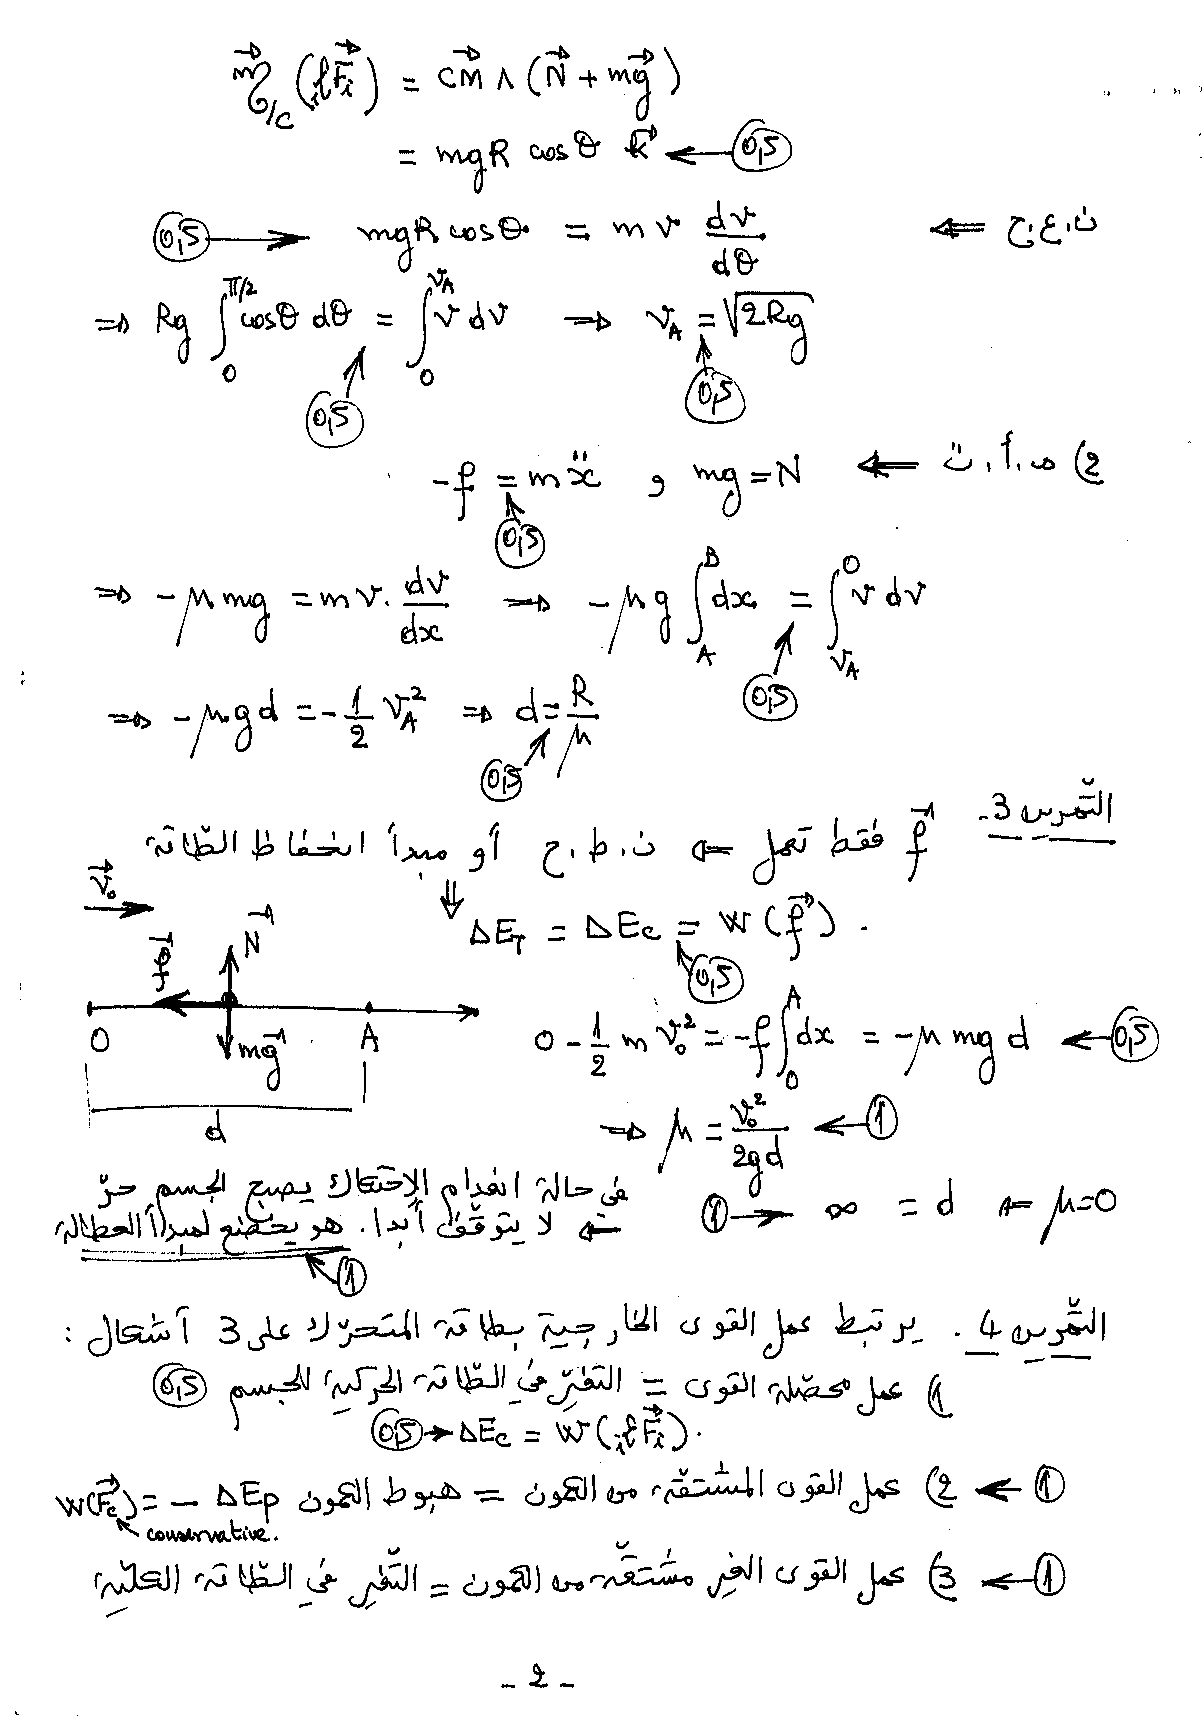 $\vec{\mathcal{M}}_{/C}(\mathcal{R}\vec{F_i}) = \vec{CM} \wedge (\vec{N} + m\vec{g})$
$= mgR \cos\theta \; \vec{k}$ ← 0,5
ن.ع.ح ⇐ $mgR\cos\theta = mv \frac{dv}{d\theta}$ ← 0,5
$\Rightarrow Rg \int_0^{\pi/2} \cos\theta \, d\theta = \int_0^{v_A} v \, dv \Rightarrow v_A = \sqrt{2Rg}$
0,5 0,5
2) م.أ.ت ⇐ $mg = N$ و $-f = m\ddot{x}$
0,5
$\Rightarrow -\mu mg = mv.\frac{dv}{dx} \Rightarrow -\mu g \int_A^B dx = \int_{v_A}^0 v \, dv$
0,5
$\Rightarrow -\mu g d = -\frac{1}{2} v_A^2 \Rightarrow d = \frac{R}{\mu}$
0,5
التّمرين 3-
$\vec{f}$ فقط تعمل ⇐ ن.ط.ح أو مبدأ انحفاظ الطّاقة
⇓ $\Delta E_T = \Delta E_c = W(\vec{f})$.
0,5
$\vec{v_0}$
$\vec{f}$ $\vec{N}$
O $m\vec{g}$ A
d
$0 - \frac{1}{2} m v_0^2 = -f \int_0^A dx = -\mu mg d$ ← 0,5
$\Rightarrow \mu = \frac{v_0^2}{2gd}$ ← 1
$\mu = 0$ ⇐ $d = \infty$ ← 1
في حالة انعدام الإحتكاك يصبح الجسم حرّ
⇐ لا يتوقّف أبدا. هو يخضع لمبدأ العطالة
1
التّمرين 4. يرتبط عمل القوى الخارجية بطاقة المتحرّك على 3 أشكال :
1) عمل محصّلة القوى = التغيّر في الطّاقة الحركية للجسم 0,5
0,5 → $\Delta E_c = W(\mathcal{R}\vec{F_i})$.
1 → 2) عمل القوى المشتقّة من الكمون = هبوط الكمون $W(\vec{F_c}) = -\Delta E_p$
conservative.
1 → 3) عمل القوى الغير مشتقّة من الكمون = التّغير في الطّاقة الكلّيّة
- 2 -